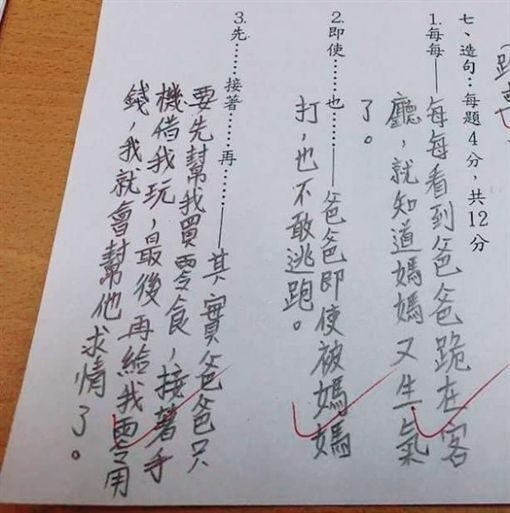 七、造句：每題4分，共12分
1.每每——每每看到爸爸跪在客
廳，就知道媽媽又生氣
了。
2.即使……也……——爸爸即使被媽媽
打，也不敢逃跑。
3.先……接著……再……——其實爸爸只
要先幫我買零食，接著手
機借我玩，最後再給我零用
錢，我就會幫他求情了。